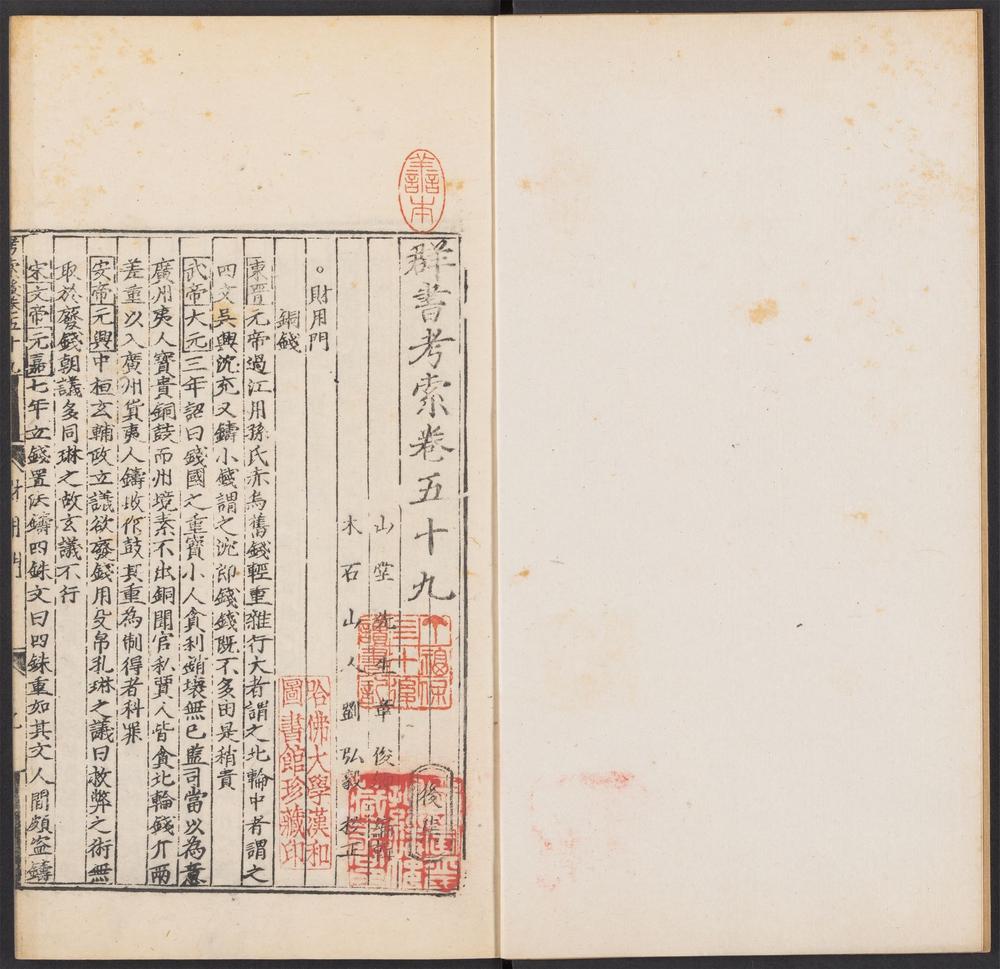 善本
群書考索卷五十九
後集
山堂先生章俊卿編輯
木石山人劉弘毅校正
丁福保
三十歲
讀書記
哈佛大學漢和
圖書館珍藏印
。財用門
銅錢
東晉元帝過江用孫氏赤烏舊錢輕重雜行大者謂之北輪中者謂之
四文吳興沈充又鑄小錢謂之沈郎錢錢既不多由是稍貴
武帝大元三年詔曰錢國之重寶小人貪利銷壞無已監司當以為意
廣州夷人寶貴銅鼓而州境素不出銅聞官私賈人皆貪北輪錢斤兩
差重以入廣州貨夷人鑄敗作鼓其重為制得者科罪
安帝元興中桓玄輔政立議欲廢錢用穀帛孔琳之議曰救弊之術無
取於廢錢朝議多同琳之故玄議不行
宋文帝元嘉七年立錢置法鑄四銖文曰四銖重如其文人間頗盜鑄
考索後卷五十九
財用門